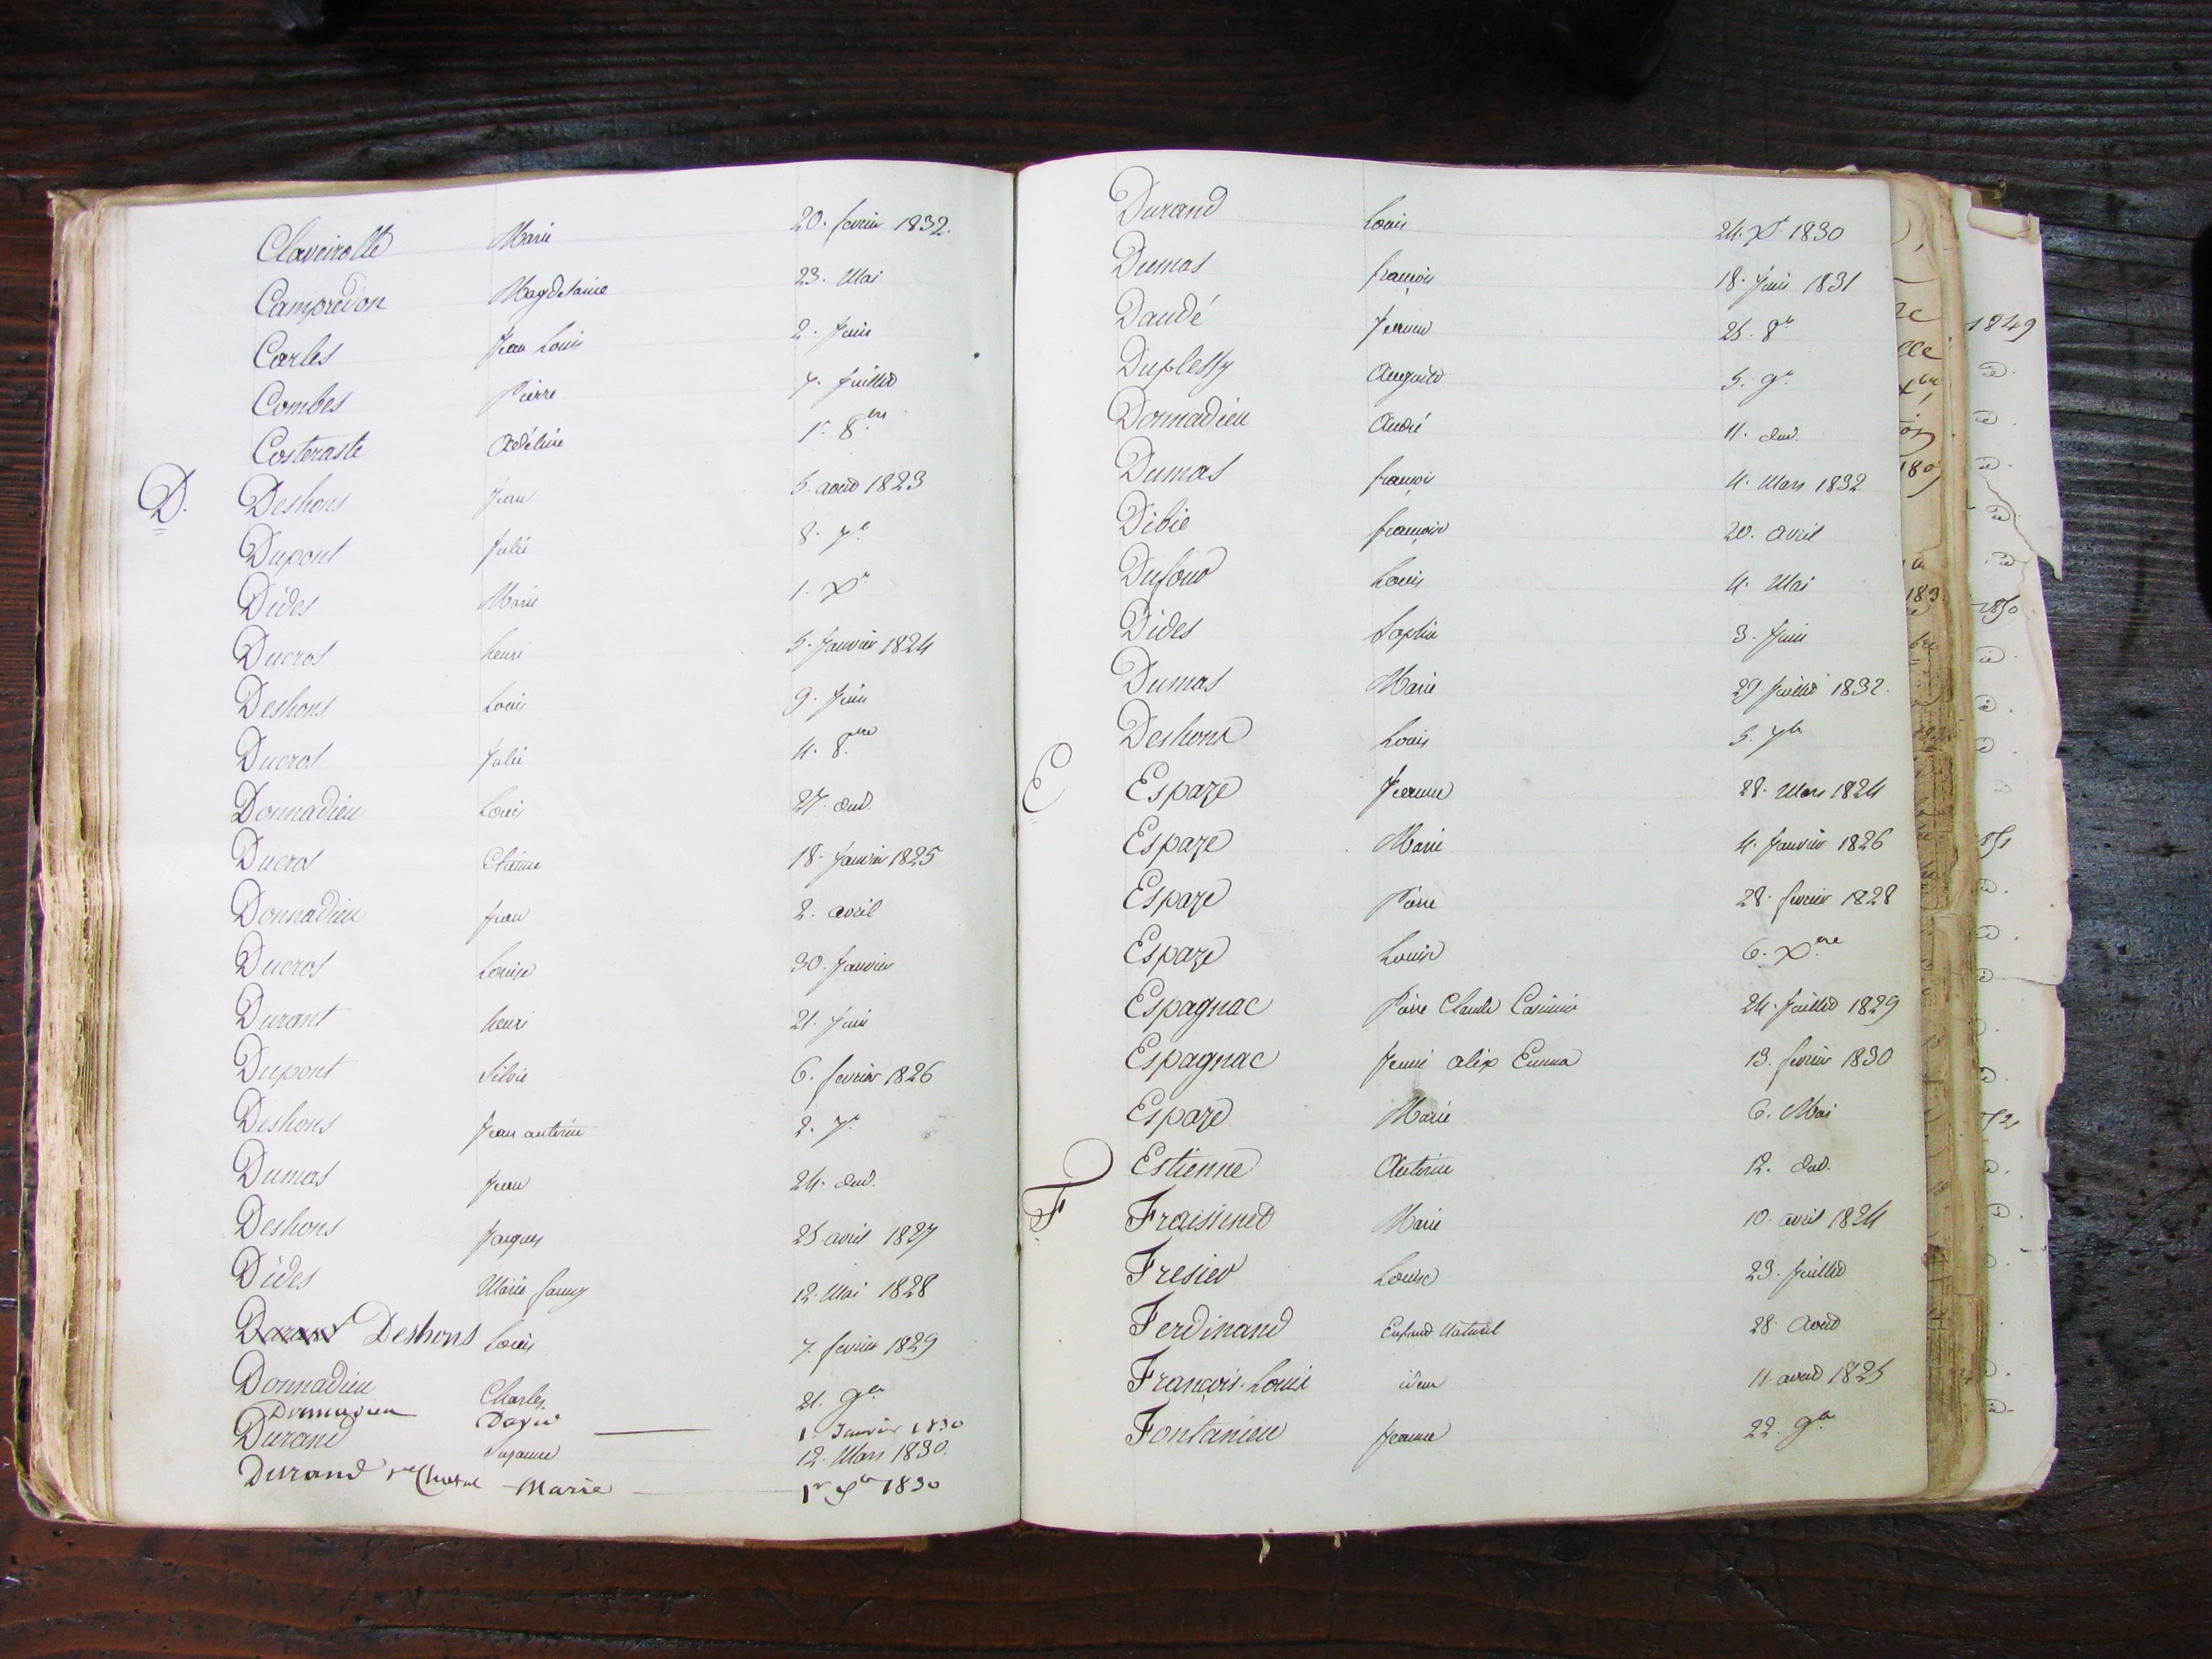 Claveirolle Marie 20. fevrier 1832.
Campredon Magdelaine 23. Mai
Carles Jean Louis 2. Juin
Combes Pierre 7. Juillet
Costeraste Adéline 1er 8bre
D. Deshons Jean 5. aout 1823
Dupont Julie 8. 7b
Dides Marie 1. Xr
Ducros henri 5. Janvier 1824
Deshons Louis 9. Juin
Ducros Julie 4. 8bre
Donnadieu Louis 27. dud.
Ducros Etienne 18. Janvier 1825
Donnadieu Jean 2. avril
Ducros Louise 30. Janvier
Durant henri 21. Juin
Dupont Silvie 6. fevrier 1826
Deshons Jean antoine 2. 7r
Dumas Jean 24. dud.
Deshons Jacques 25 avril 1827
Dides Marie fanny 12. Mai 1828
Deshons Louis 7. fevrier 1829
Donnadieu Charles 21. 9br
Donnadieu David 1er Janvier 1830
Durand Suzanne 12. Mars 1830.
Durand Marie 1er 1830
Durand Louis 24. Xr 1830
Dumas françois 18. Juin 1831
Daudé Jeanne 25. 8b
Duplessy Auguste 5. 9r
Donnadieu André 11. dud.
Dumas françois 4. Mars 1832.
Dibie françoise 20. avril
Dufour Louis 4. Mai
Dides Sophie 3. Juin
Dumas Marie 29 Juillet 1832.
Deshons Louis 5. 7b
E Espaze Jeanne 28. Mars 1824
Espaze Marie 4. Janvier 1826
Espaze Pierre 28. fevrier 1828
Espaze Louise 6. Xbre
Espagnac Pierre Claude Casimir 24. Juillet 1829
Espagnac Jenni alix Emma 13. fevrier 1830
Espaze Marie 6. Mai
Estienne Antoine 12. dud.
F Fraissinet Marie 10. avril 1824
Fresier Louise 23. Juillet
Ferdinand Enfant Naturel 28. Aout
François-Louis idem 11. aout 1825
Fontanieu Jeanne 22. 9br
1849